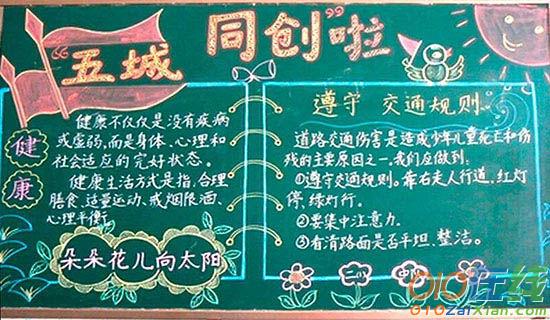 “五城同创”啦
健康
健康不仅仅是没有疾病
或虚弱，而是身体、心理和
社会适应的完好状态。
健康生活方式是指，合理
膳食、适量运动、戒烟限酒、
心理平衡。
朵朵花儿向太阳
遵守 交通规则。
道路交通伤害是造成少年儿童死亡和伤
残的主要原因之一，我们应做到：
①遵守交通规则。靠右走人行道，红灯
停，绿灯行。
②要集中注意力.
③看清路面是否平坦、整洁。
010在线
010zaixian.com